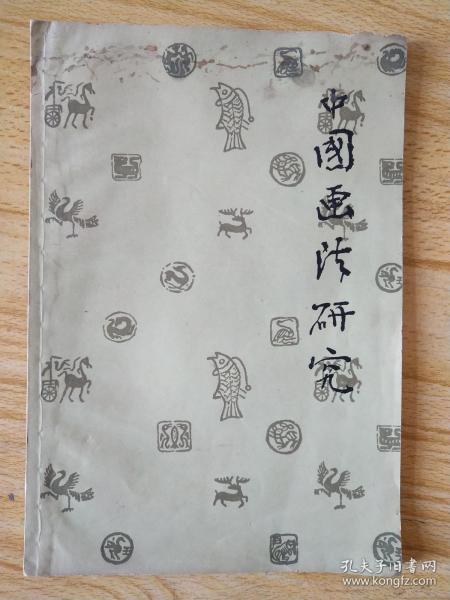 中國画法研究
孔夫子旧书网
www.kongfz.com